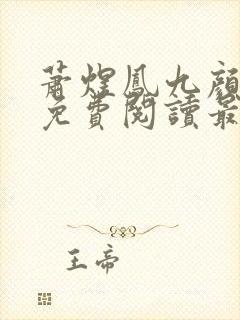 蕭煜鳳九顏
免費閱讀最
王帝